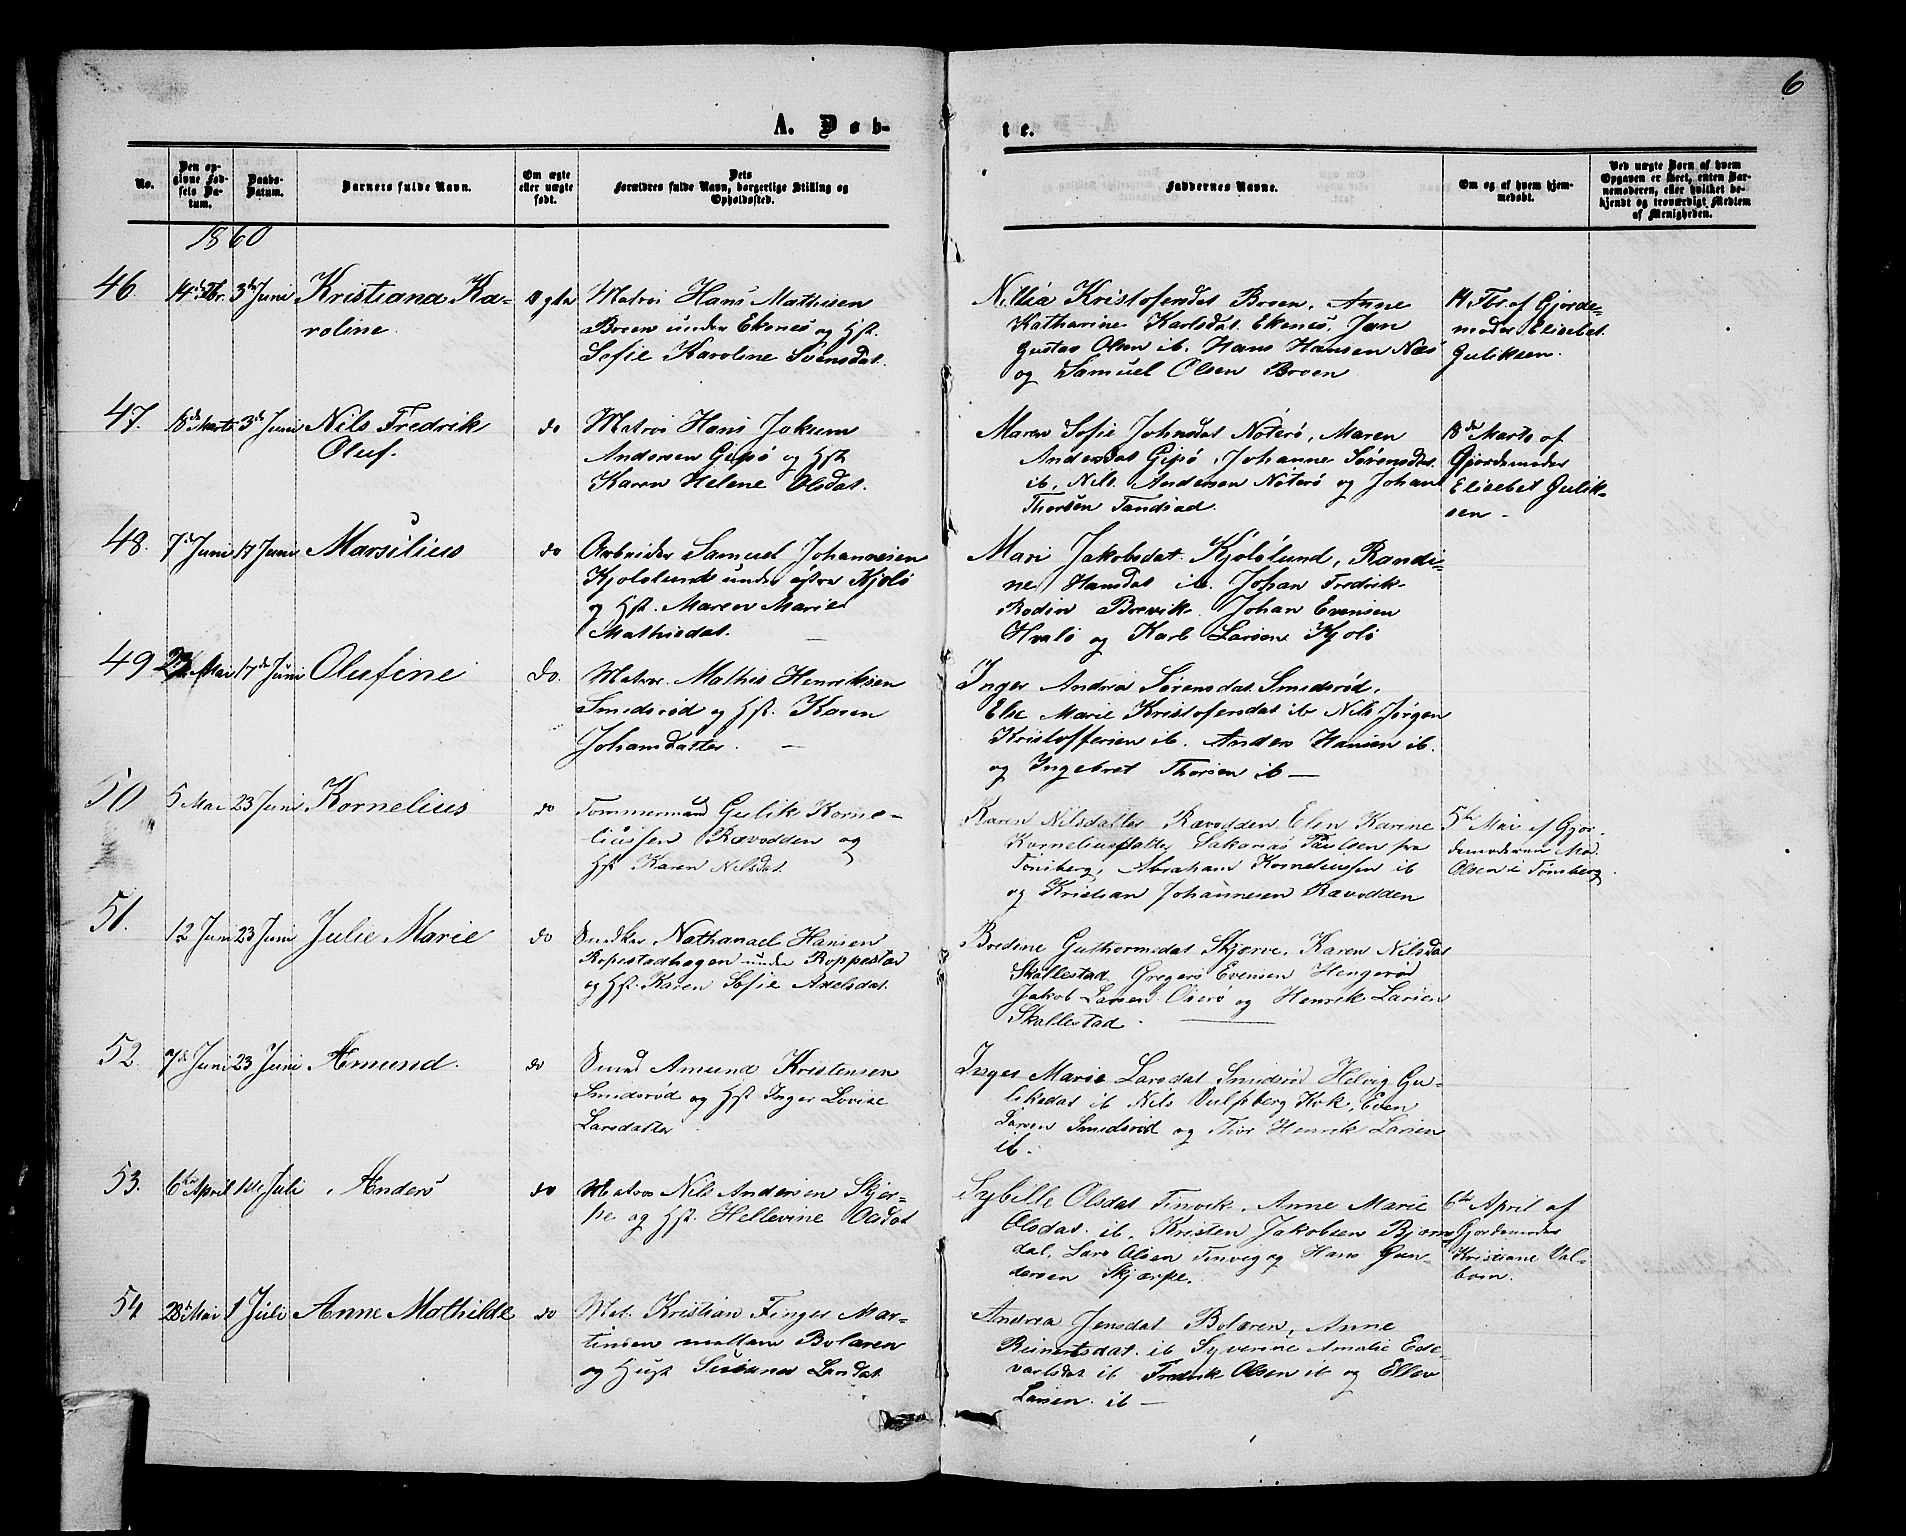 6
A. Døb-
te.
No.
Den op-
givne Fød-
sels Da-
tum.
Daabs-
Datum.
Barnets fulde Navn.
Om ægte
eller uægte
født.
Dets
Forældres fulde Navn, borgerlige Stilling og
Opholdssted.
Faddernes Navne.
Om og af hvem hjem-
medøbt.
Ved uægte Børn af hvem
Opgaven er skeet, enten Bar-
nemoderen, eller hvilket be-
kjendt og troværdigt Medlem
af Menigheden.
1860
46. 14de Fbr. 3die Juni Kristiana Ka-
roline.
Ægte
Matros Hans Mathisen
Broen under Ekenes og Hst.
Sofie Karoline Svensdat.
Kristofersdat Broen, Anne
Katharine Karlsdat. Ekenes, Jan
Gustav Olsen ib. Hans Hansen Næs
og Samuel Olsen Broen
14 Fbr. af Gjorde-
moder Elisebet
Guliksen.
47. 18de Marts 3de Juni Nils Fredrik
Oluf.
do
Matros Hans Jokum
Andersen Gipø og Hst.
Karen Helene Olsdat.
Maren Sofie Johnsdat Nøterø, Maren
Andersdat Gipø, Johanne Sørensdat.
ib, Nils Andersen Nøterø og Johan
Thorsen Tandstad.
18de Marts af
Gjordemoder
Elisebet Gulik-
sen.
48. 7de Juni 17 Juni Marsilius
do
Arbeider Samuel Johannesen
Kjøløslund under østre Kjølø
og Hst. Maren Marie
Mathisdat.
Mari Jakobsdat. Kjøløslund, Randi-
ne Hansdat ib. Johan Fredrik
Bodin Brevik. Johan Evensen
Hvalø og Karl Larsen Kjølø
49 Mai 17de Juni Olufine
do.
Matros. Mathis Henriksen
Smidsrød og Hst. Karen
Johansdatter.
Inger Andrea Sørensdat Smidsrød,
Else Marie Kristofersdat ib Nils Jørgen
Kristoffersen ib. Anders Hansen ib.
og Ingebret Thorsen ib
50 5 Mai 23 Juni Kornelius
do
Tømmermand Gulik Korne-
liussen Rævodden og
Hst Karen Nilsdat.
Karen Nilsdatter Rævodden Elen Karine
Korneliusdatter Sakarias Paulsen fra
Tønsberg, Abraham Korneliussen ib
og Kristian Johannesen Rævodden
5te Mai af Gjor-
demoderen Mad.
Olsen i Tønsberg.
51. 12 Juni 23 Juni Julie Marie
do
Snedker Nathanael Hansen
Ropestadhagen under Roppestad
og Hst. Karen Sofie Axelsdat.
Bredine Guthormsdat Skjerve, Karen Nilsdat
Skallestad Gregers Evensen Hengerød
Jakob Larsen Oserø og Henrik Larsen
Skallestad.
52. 7de Juni 23 Juni Amund.
do
Smed Amund Kristensen
Smidsrød og Hst Inger Lovise
Larsdatter
Inger Marie Larsdat Smidsrød Helvig Gu-
liksdat ib Nils Vulfsberg Kok, Even
Larsen Smidsrød og Thor Henrik Larsen
ib.
53. 6te April 1ste Juli Anders
do
Matros Nils Andersen Skjer-
pe og Hst. Hellevine Olsdat
Sybille Olsdat Tinvik, Anne Marie
Olsdat. ib, Kristen Jakobsen Bjørn-
dal, Lars Olsen Tinvig og Hans Gun-
dersen Skjærpe.
6te April af
Gjordemoder
Kristiane Val-
born.
54 28de Mai 1 Juli Anne Mathilde
do
Mat. Kristian Finger Mar-
tinsen mellem Bolæren
og Hust Susanna Larsdat
Andrea Jensdat Bolæren, Anne
Reinertsdat. ib Syverine Amalie Ed-
varlsdat ib Fredrik Olsen ib og Ellev
Larsen ib